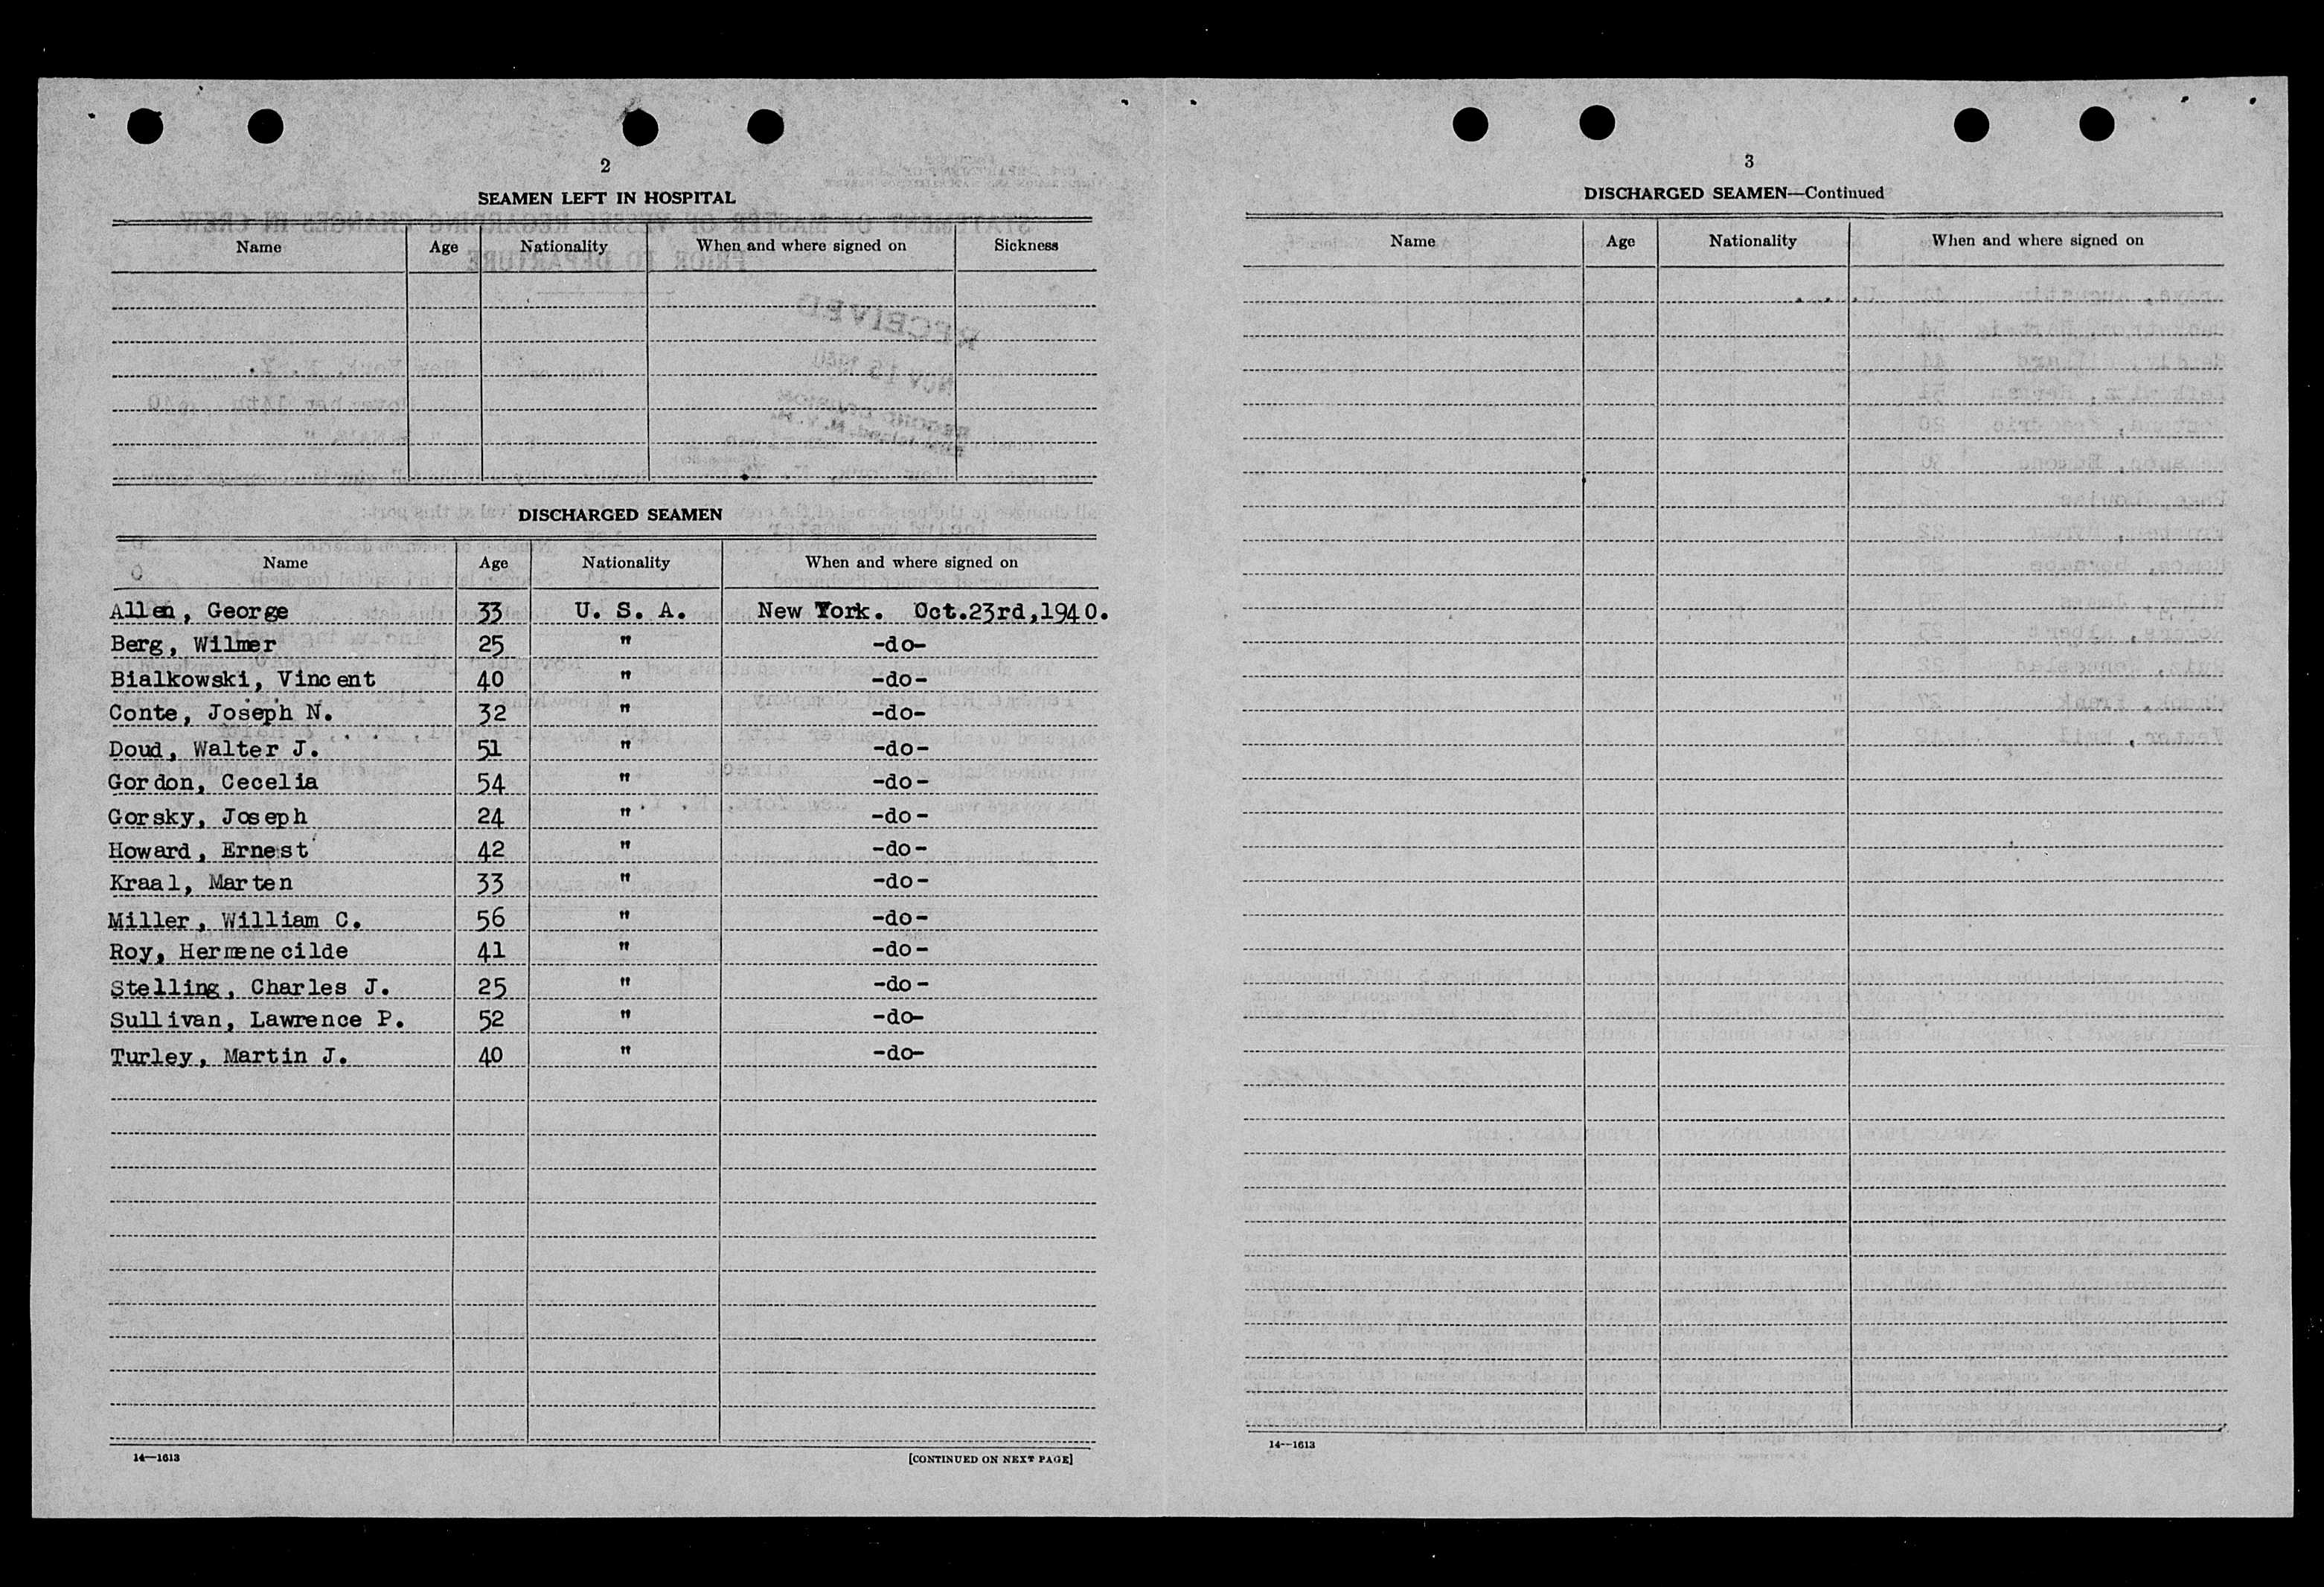 2
SEAMEN LEFT IN HOSPITAL
Name Age Nationality When and where signed on Sickness
DISCHARGED SEAMEN
Name Age Nationality When and where signed on
Allen, George 33 U. S. A. New York. Oct.23rd,1940.
Berg, Wilmer 25 " -do-
Bialkowski, Vincent 40 " -do-
Conte, Joseph N. 32 " -do-
Doud, Walter J. 51 " -do-
Gordon, Cecelia 54 " -do-
Gorsky, Joseph 24 " -do-
Howard, Ernest 42 " -do-
Kraal, Marten 33 " -do-
Miller, William C. 56 " -do-
Roy, Hermenecilde 41 " -do-
Stelling, Charles J. 25 " -do-
Sullivan, Lawrence P. 52 " -do-
Turley, Martin J. 40 " -do-
14—1613 [CONTINUED ON NEXT PAGE]
3
DISCHARGED SEAMEN—Continued
Name Age Nationality When and where signed on
14—1613